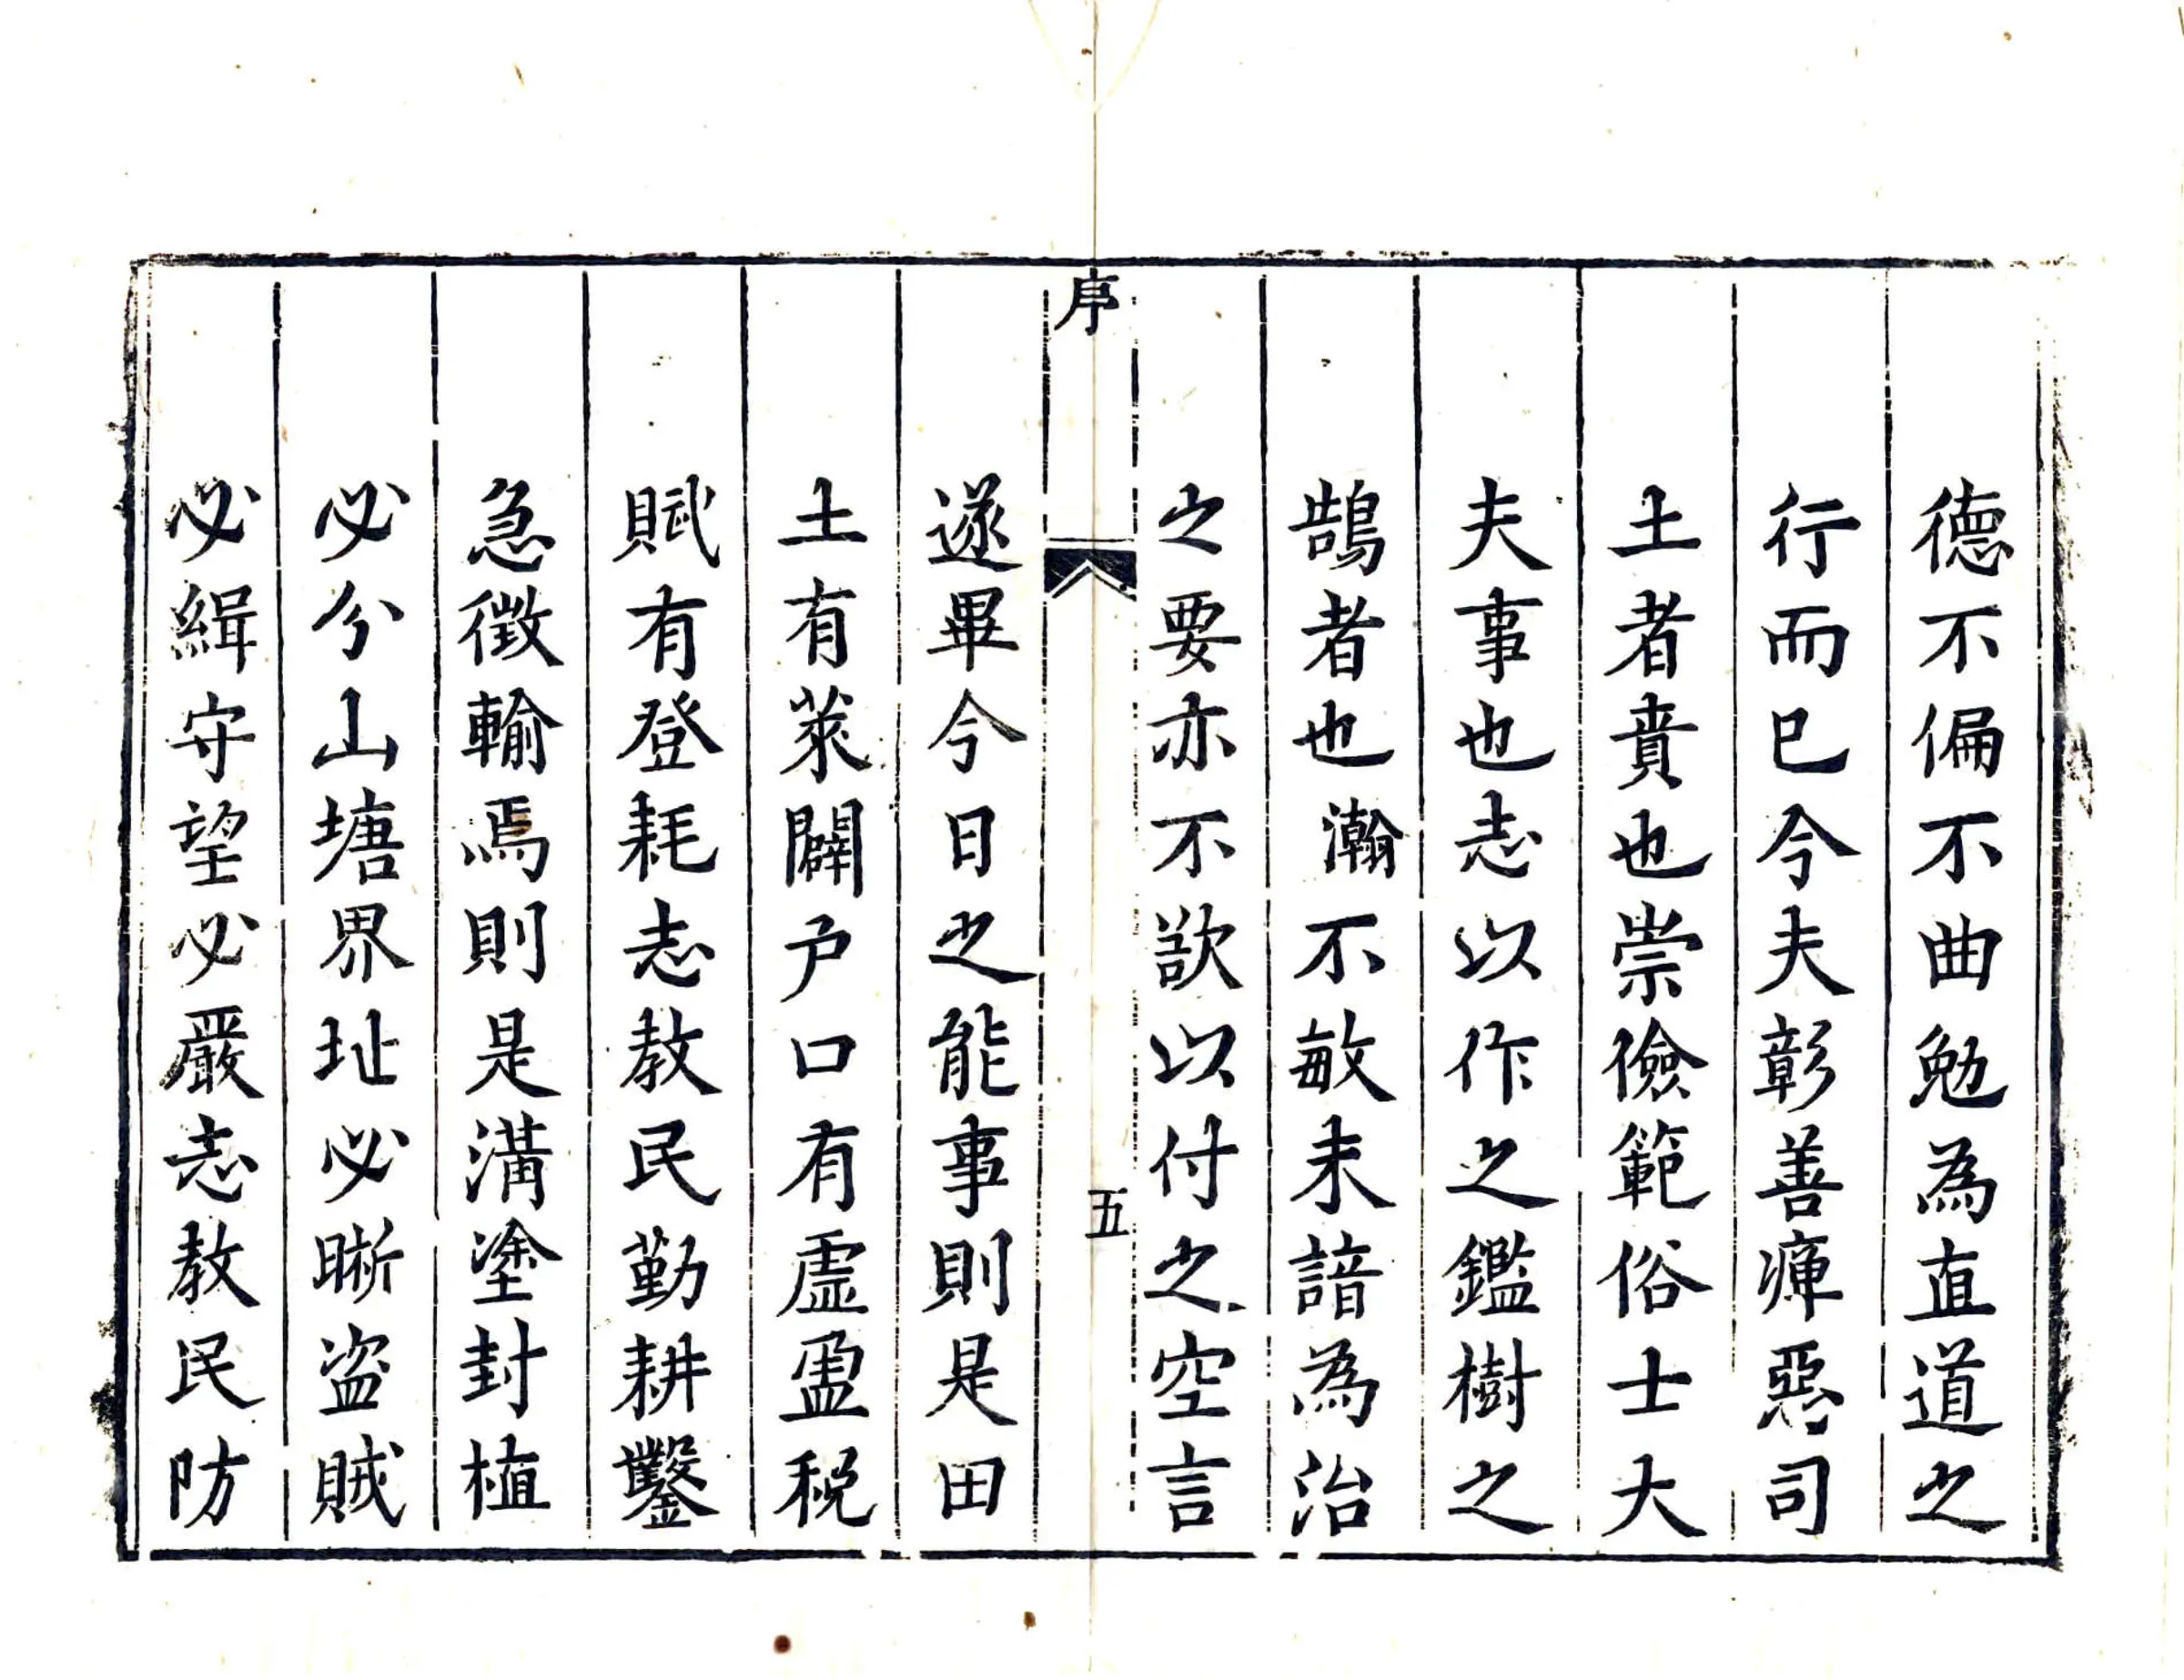 德不偏不曲勉為直道之
行而已今夫彰善癉惡司
土者責也崇儉範俗士大
夫事也志以作之鑑樹之
鵠者也瀚不敏未諳為治
之要亦不欲以付之空言
序
五
遂畢今日之能事則是田
土有萊闢户口有虛盈稅
賦有登耗志教民勤耕鑿
急徵輸焉則是溝塗封植
必分山塘界址必晰盗賊
必緝守望必嚴志教民防